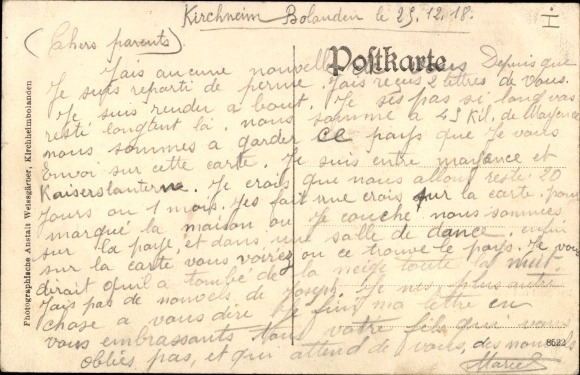 Kirchheim Bolanden le 25.12.18.
I
(Chers parents)
Postkarte
Jais aucune nouvelle de vous Depuis que
Je suis reparti de perme. Jais recus 2 lettres de vous.
Je suis rendu a bout. Je sais pas si lont vas
resté longtent là. nous somme a 45 Kil. de Mayence
nous sommes a garder ce pays que Je vous
Envoi sur cette carte. Je suis entre mayance et
Kaiserslanterne. Je crois que nous allons reste 20
Jours ou 1 mois. Jes fait une crois sur la carte. pour
marqué la maison ou Je couche. nous sommes
sur la paye, et dans une salle de dance. enfin
sur la carte vous voirez ou ce trouve le pays. Je vous
dirait qu'il a tombé de la neige toute la nuit.
Jais pas de nouvels de Joseph. Je nes plus autre
chose a vous dire Je fini ma lettre en
vous embrassants tous votre fils qui vous
obliés pas, et qui attend de voils, des nouvels
Marcel
8522
Photographische Anstalt Weissgärner, Kirchheimbolanden